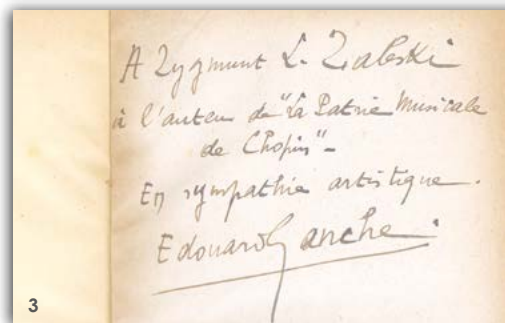 A Zygmunt L. Zaleski
à l'auteur de "La Patrie Musicale
de Chopin" -
En sympathie artistique.
Edouard Ganche.
3